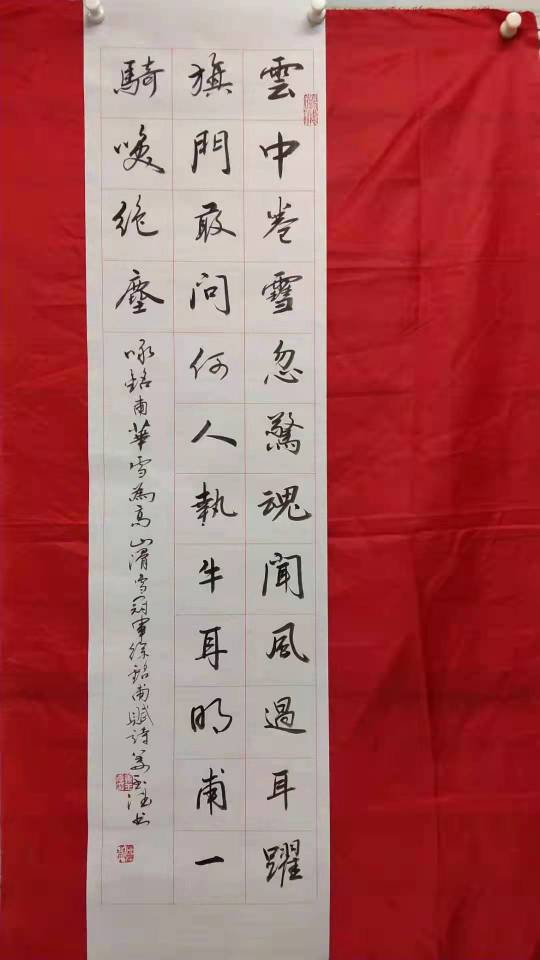 雲中卷雪忽驚魂聞風過耳躍
旗門敢問何人執牛耳明甫一
騎喚絶塵
咏銘甫華雪為高山滑雪冠軍徐銘甫賦詩姜玉潓书